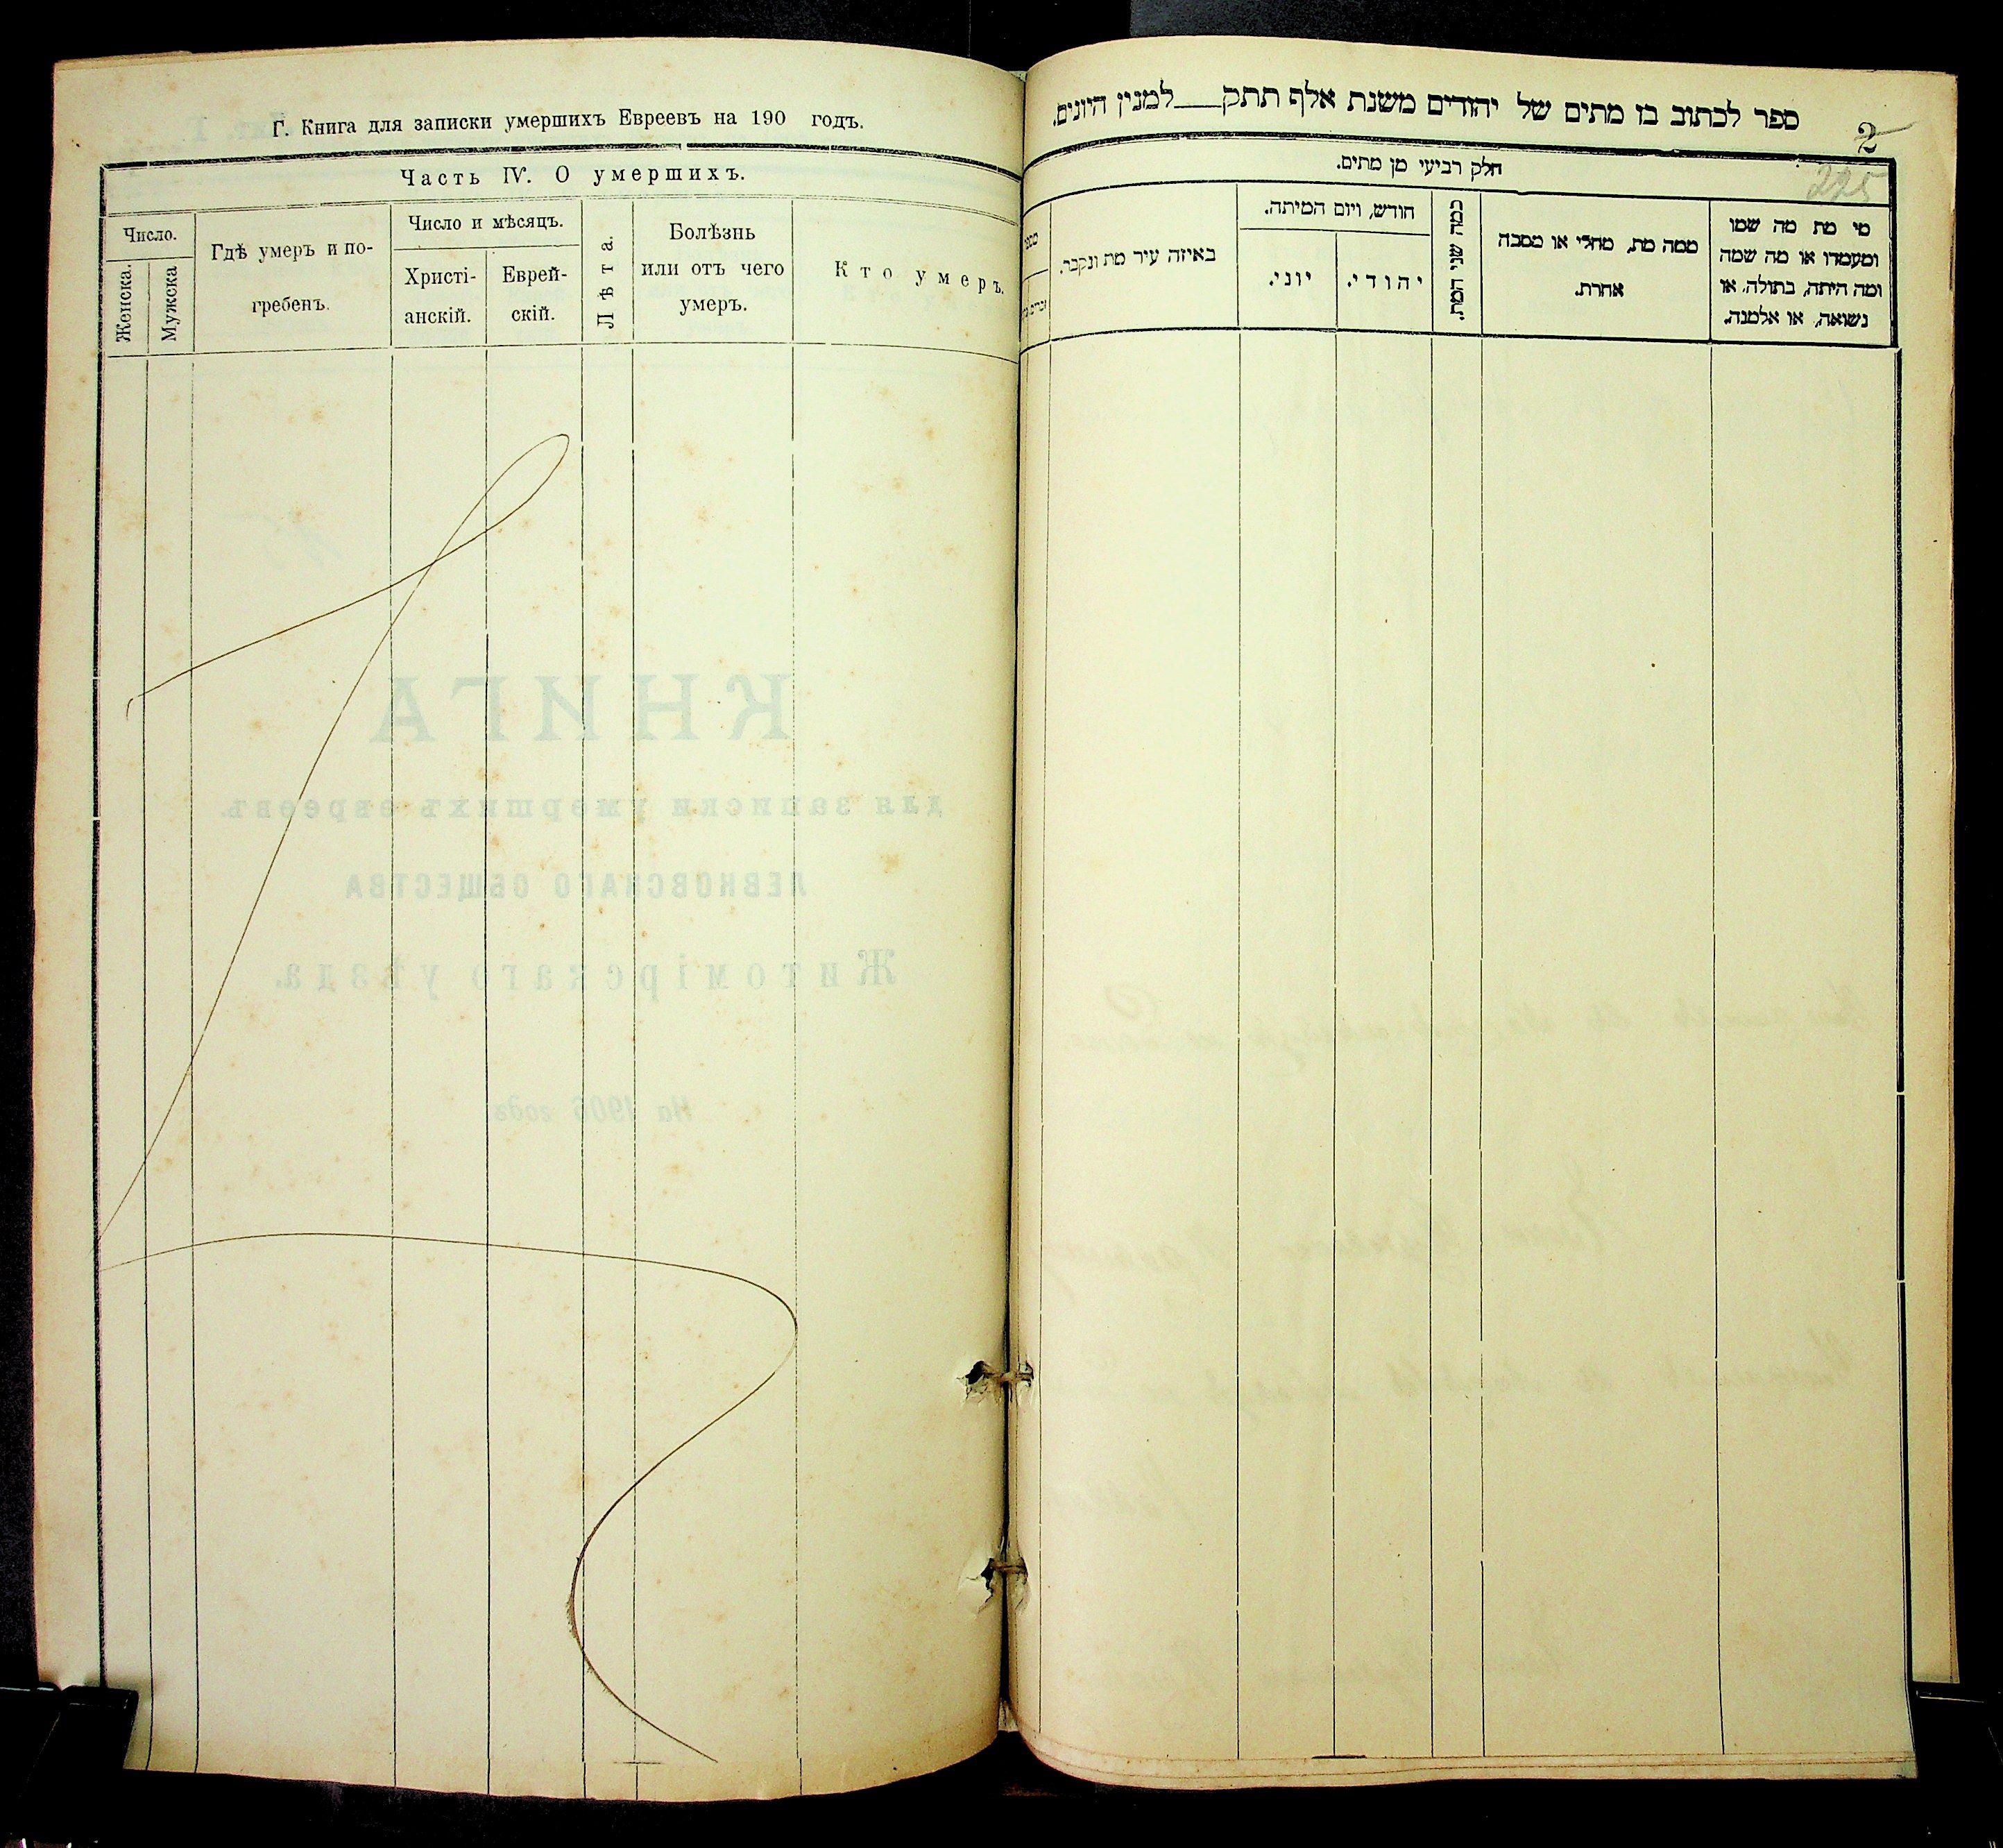 Г. Книга для записки умершихъ Евреевъ на 190 годъ.
Часть IV. О умершихъ.
Число.
Женска.
Мужска
Гдѣ умеръ и по-
гребенъ.
Число и мѣсяцъ.
Христі-
анскій.
Еврей-
скій.
Лѣта.
Болѣзнь
или отъ чего
умеръ.
Кто умеръ.
КНИГА
для записки умершихъ евреевъ
ЛЕВКОВСКАГО ОБЩЕСТВА
Житомірскаго уѣзда.
На 1906 годъ
ספר לכתוב בו מתים של יהודים משנת אלף תתק__למנין היונים.
2
225
חלק רביעי מן מתים.
מי מת מה שמו
ומעמדו או מה שמה
ומה היתה, בתולה, או
נשואה, או אלמנה.
ממה מת, מחלי או מסבה
אחרת.
כמה שני המת.
חודש, ויום המיתה.
יהודי.
יוני.
באיזה עיר מת ונקבר.